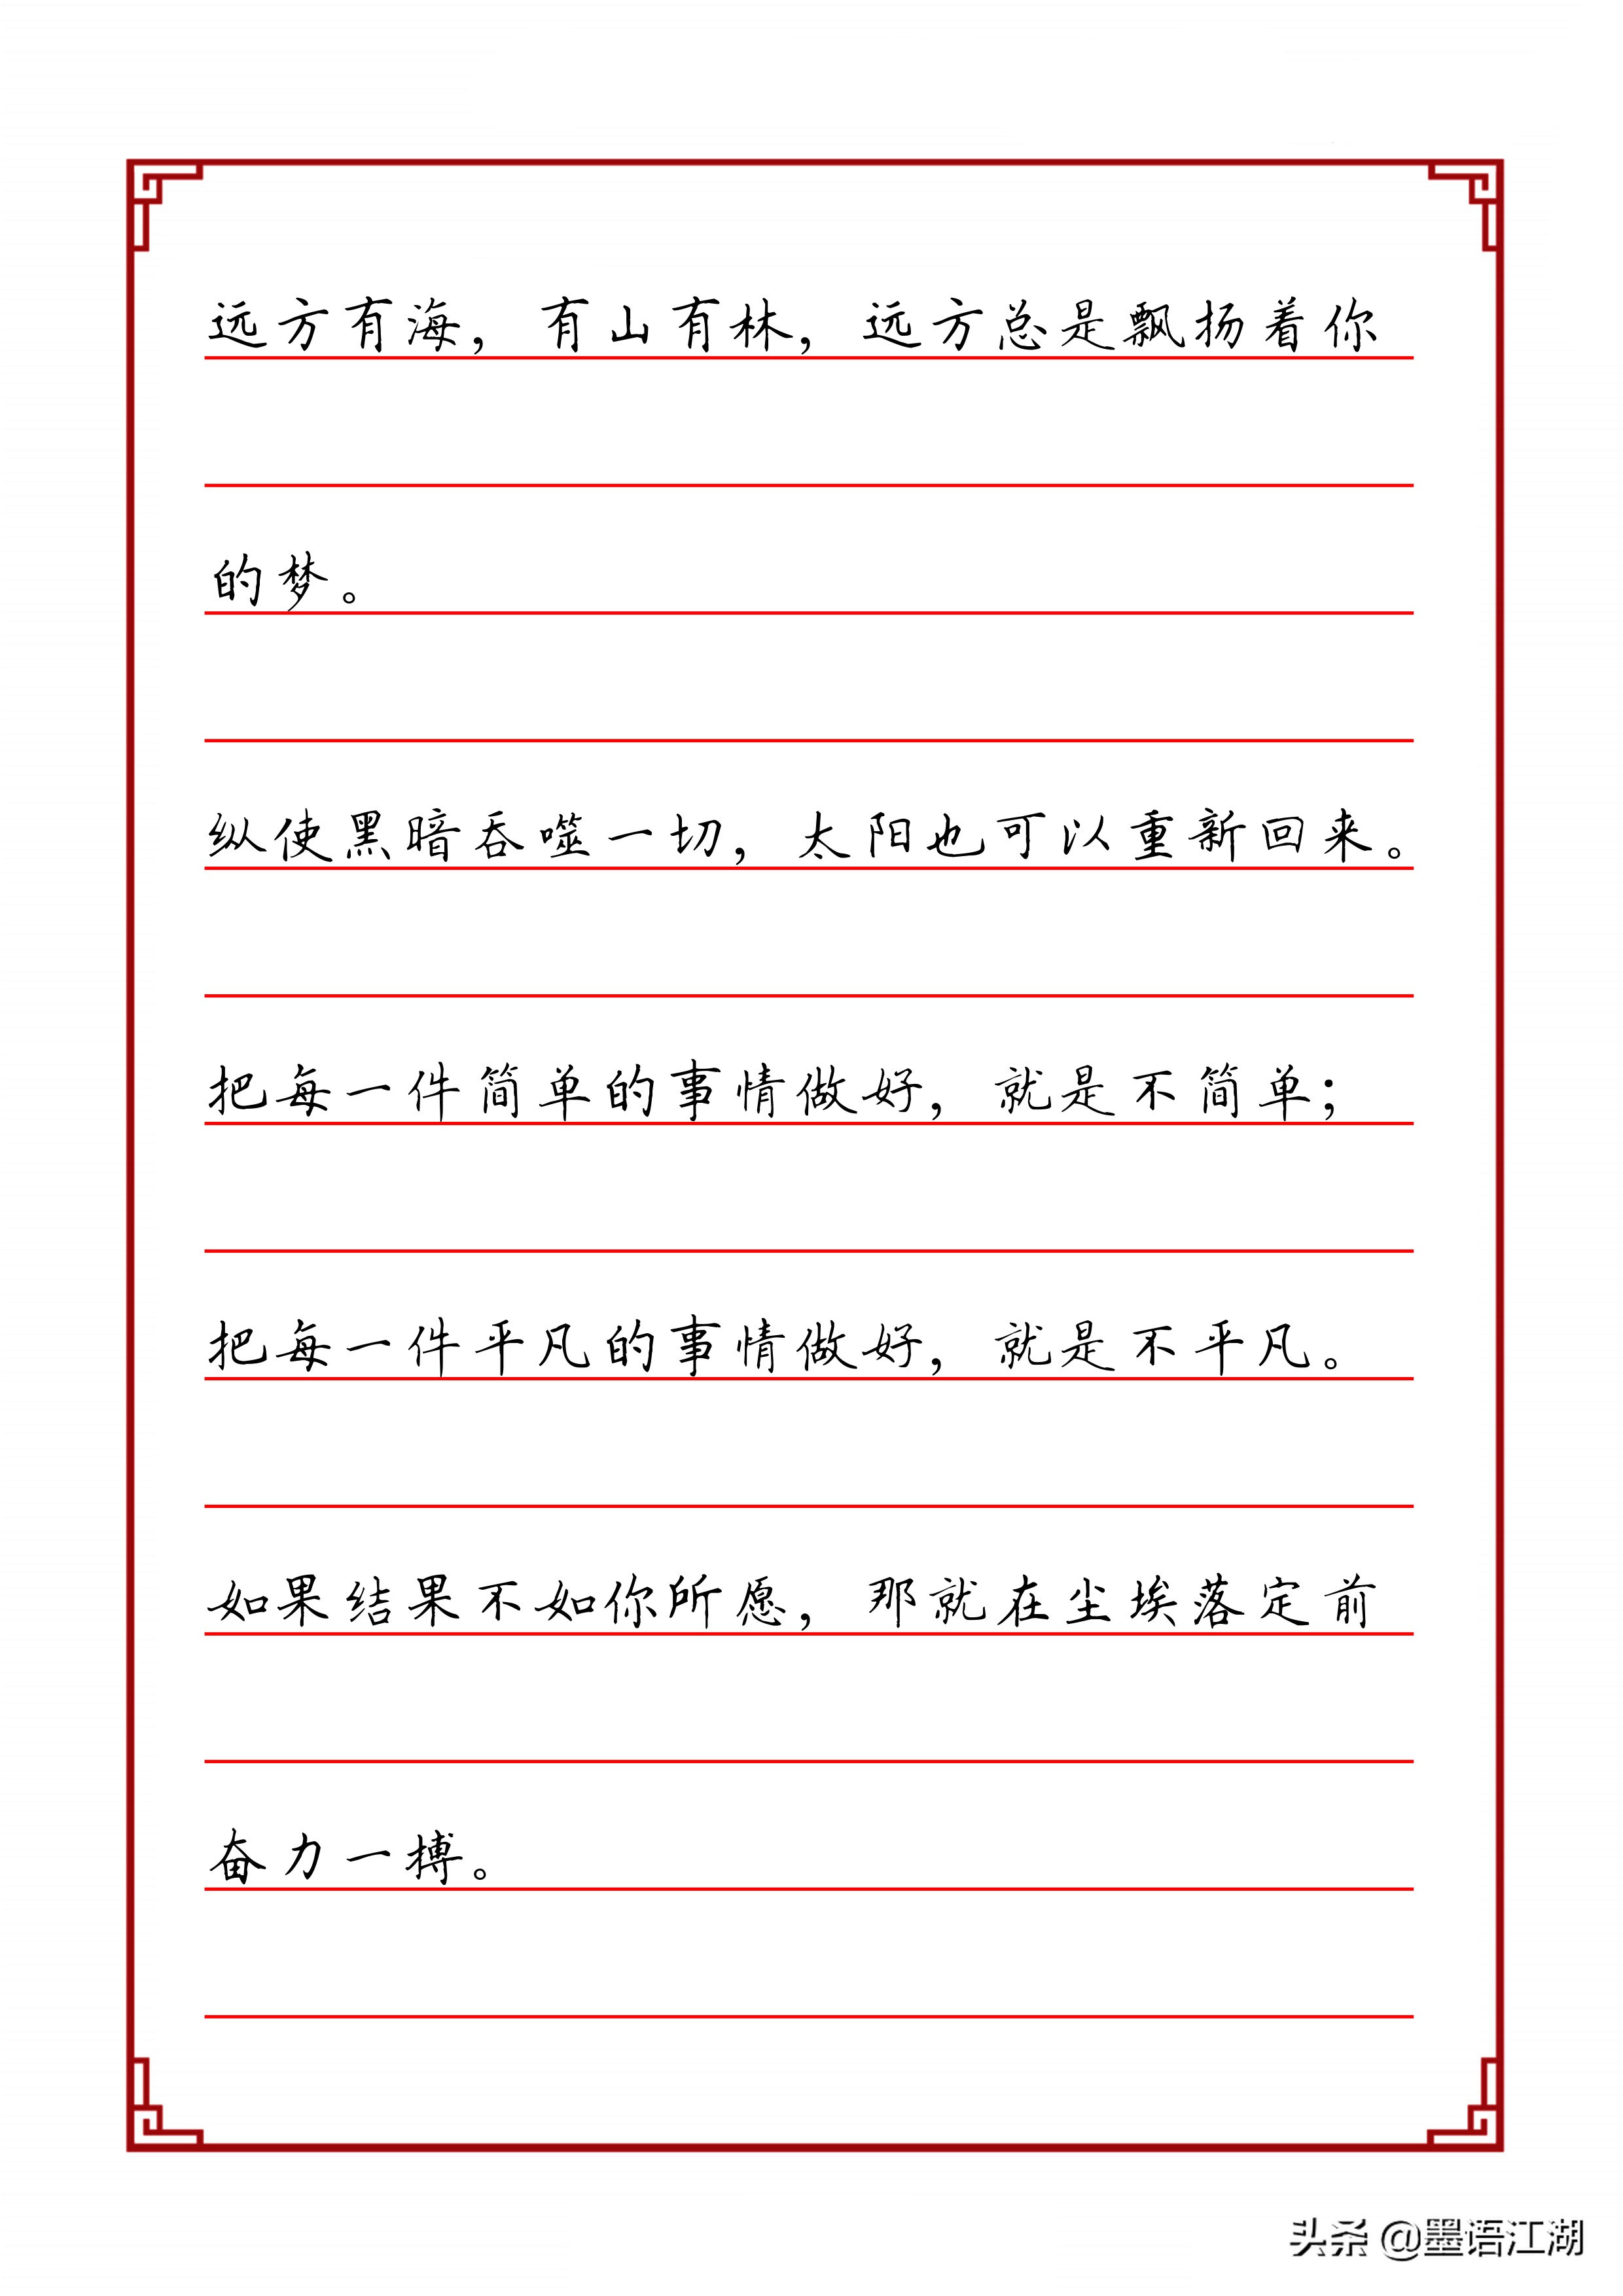 远方有海，有山有林，远方总是飘扬着你
的梦。
纵使黑暗吞噬一切，太阳也可以重新回来。
把每一件简单的事情做好，就是不简单；
把每一件平凡的事情做好，就是不平凡。
如果结果不如你所愿，那就在尘埃落定前
奋力一搏。
头条 @墨语江湖